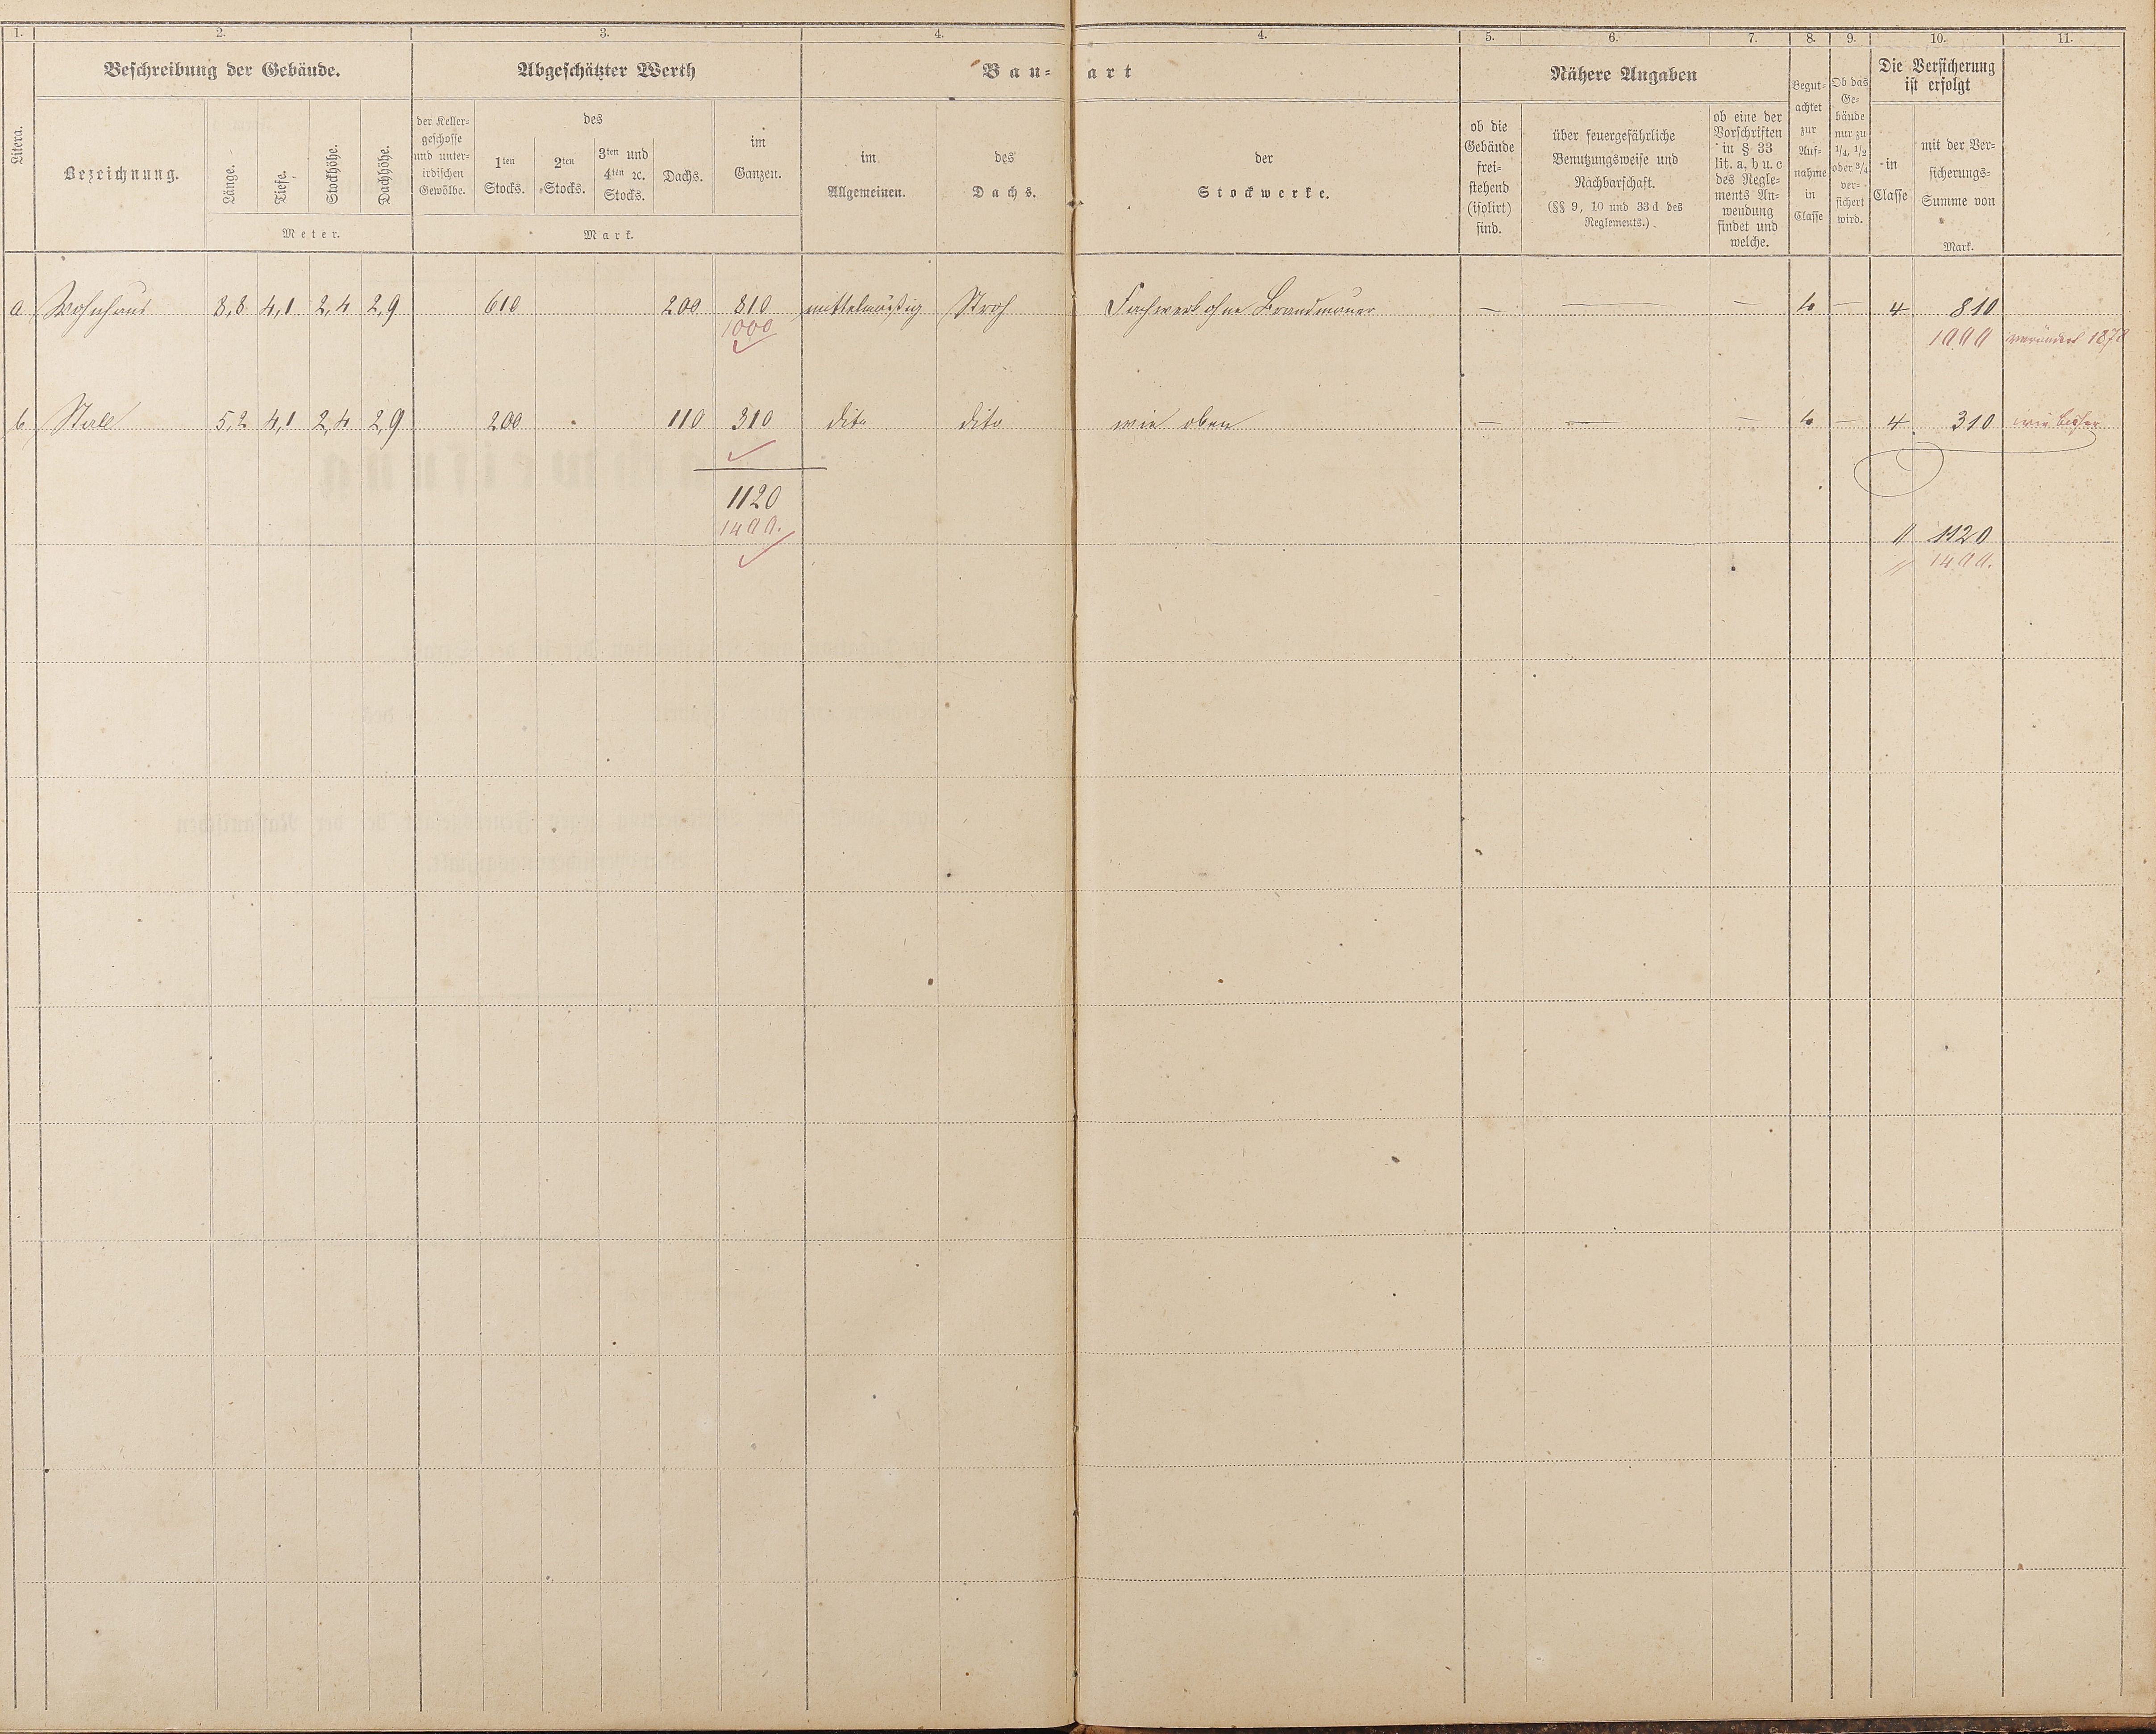 1. 2. 3. 4. 4. 5. 6. 7. 8. 9. 10. 11.
Litera.
Beschreibung der Gebäude.
Bezeichnung.
Länge.
Tiefe.
Stockhöhe.
Dachhöhe.
Meter.
Abgeschätzter Werth
der Keller-
geschosse
und unter-
irdischen
Gewölbe.
des
1ten
Stocks.
2ten
Stocks.
3ten und
4ten ꝛc.
Stocks.
Dachs.
im
Ganzen.
Mark.
Bau-art
im
Allgemeinen.
des
Dachs.
der
Stockwerke.
Nähere Angaben
ob die
Gebäude
frei-
stehend
(isolirt)
sind.
über feuergefährliche
Benutzungsweise und
Nachbarschaft.
(§§ 9, 10 und 33 d des
Reglements.)
ob eine der
Vorschriften
in § 33
lit. a, b u. c
des Regle-
ments An-
wendung
findet und
welche.
Begut-
achtet
zur
Auf-
nahme
in
Classe
Ob das
Ge-
bäude
nur zu
1/4, 1/2
oder 3/4
ver-
sichert
wird.
Die Versicherung
ist erfolgt
in
Classe
mit der Ver-
sicherungs-
Summe von
Mark.
a Wohnhaus 8,8 4,1 2,4 2,9 610 200 810 mittelmäßig Stroh Fachwerk ohne Brandmauer — — — 4 — 4 810
1000 1000 verändert 1878
b Stall 5,2 4,1 2,4 2,9 200 110 310 dito dito wie oben — — — 4 — 4 310 wie bisher
1120
1400.
" 1120
" 1400.